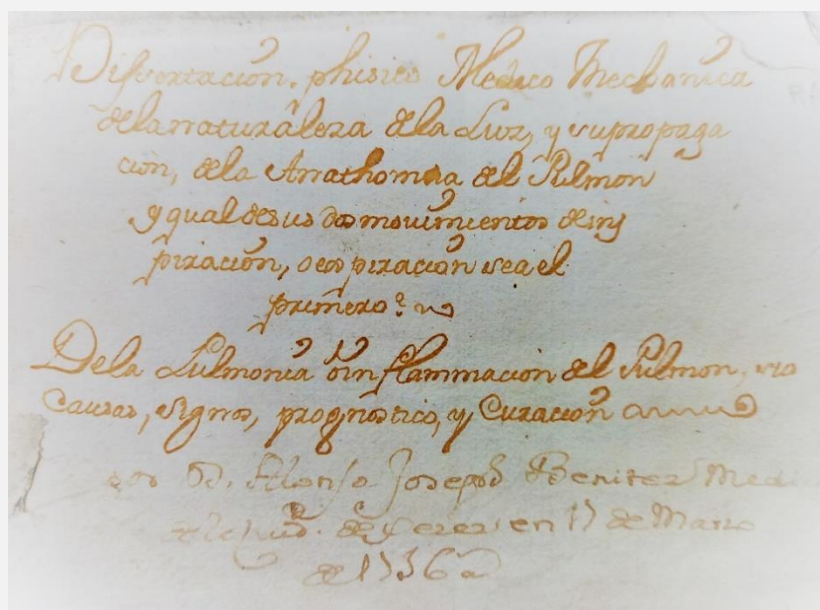 Disertacion. phisico Medico Mechanica
dela naturaleza dela Luz, y su propaga
cion, dela Anathomia del Pulmon
y qual de sus dos movimientos de ins
piracion, o espiracion sea el
primero?
Dela Pulmonia ô inflammacion del Pulmon, sus
causas, signos, prognostico, y Curacion
por D. Alonso Joseph Benitez Med
de Xerez en 17 de Marzo
de 1736